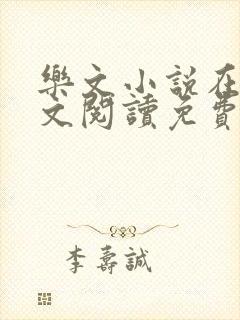 樂文小說在
文閱讀免費
李壽誠